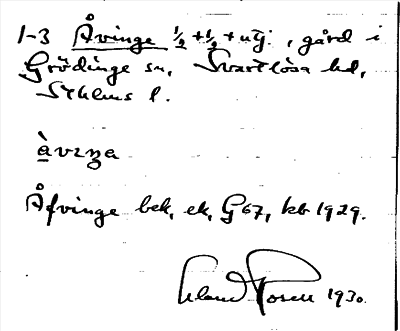 1-3 Åvinge ½ + ½ + utj., gård i
Grödinge sn, Svartlösa hd,
Sthlms l.
àvıŋa
Åfvinge bek, ek, G67, kb 1929.
Erland Rosell 1930.